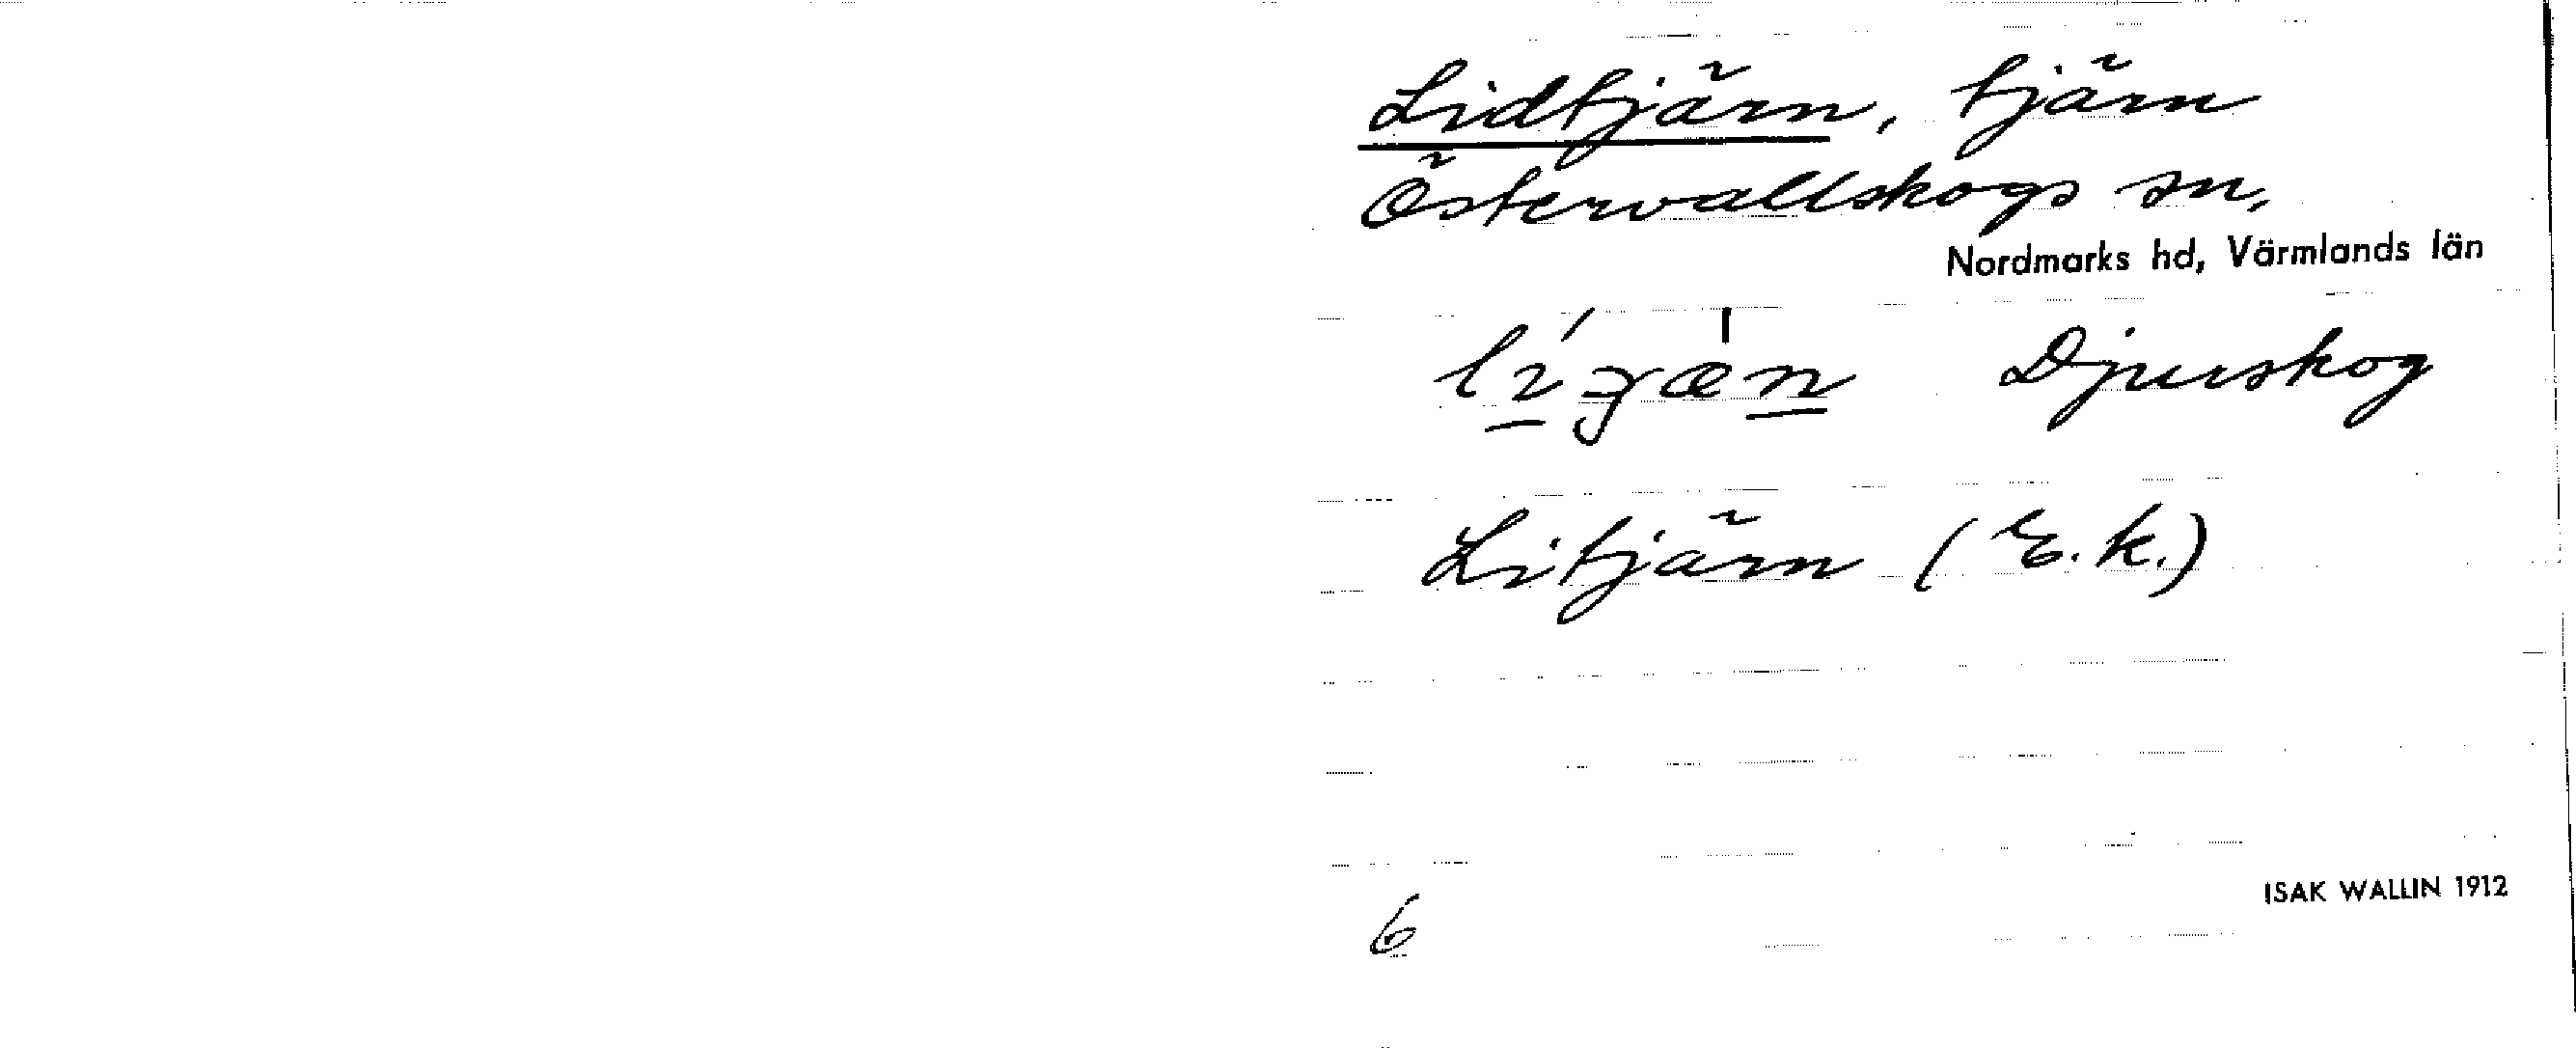 Lidtjärn, tjärn
Östervallskogs sn,
Nordmarks hd, Värmlands län
Djurskog
Litjärn (E. k.)
ISAK WALLIN 1912
6